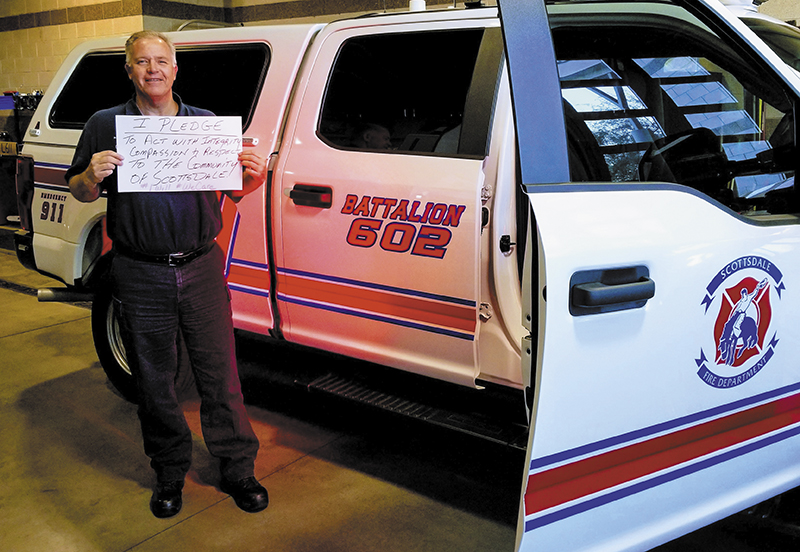 I PLEDGE
TO ACT WITH INTEGRITY
COMPASSION & RESPECT
TO THE COMMUNITY
OF SCOTTSDALE!
#IWill #WeCare
EMERGENCY
911
BATTALION
602
SCOTTSDALE
FIRE DEPARTMENT